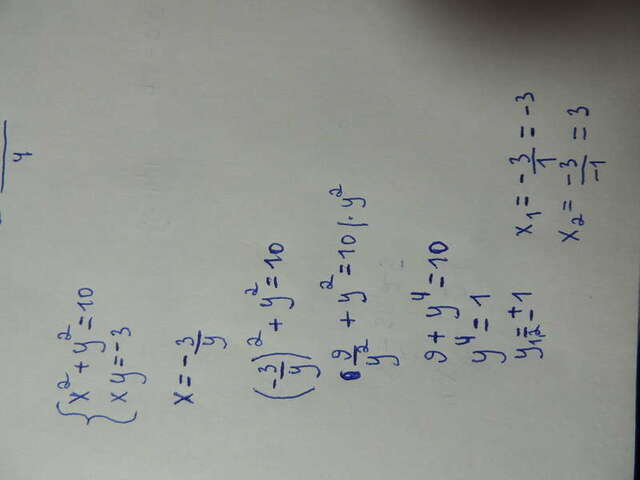 y
x² + y² = 10
xy = -3
x = -3/y
(-3/y)² + y² = 10
9/y² + y² = 10 /· y²
9 + y⁴ = 10
y⁴ = 1
y₁,₂ = ±1
x₁ = -3/1 = -3
x₂ = -3/-1 = 3